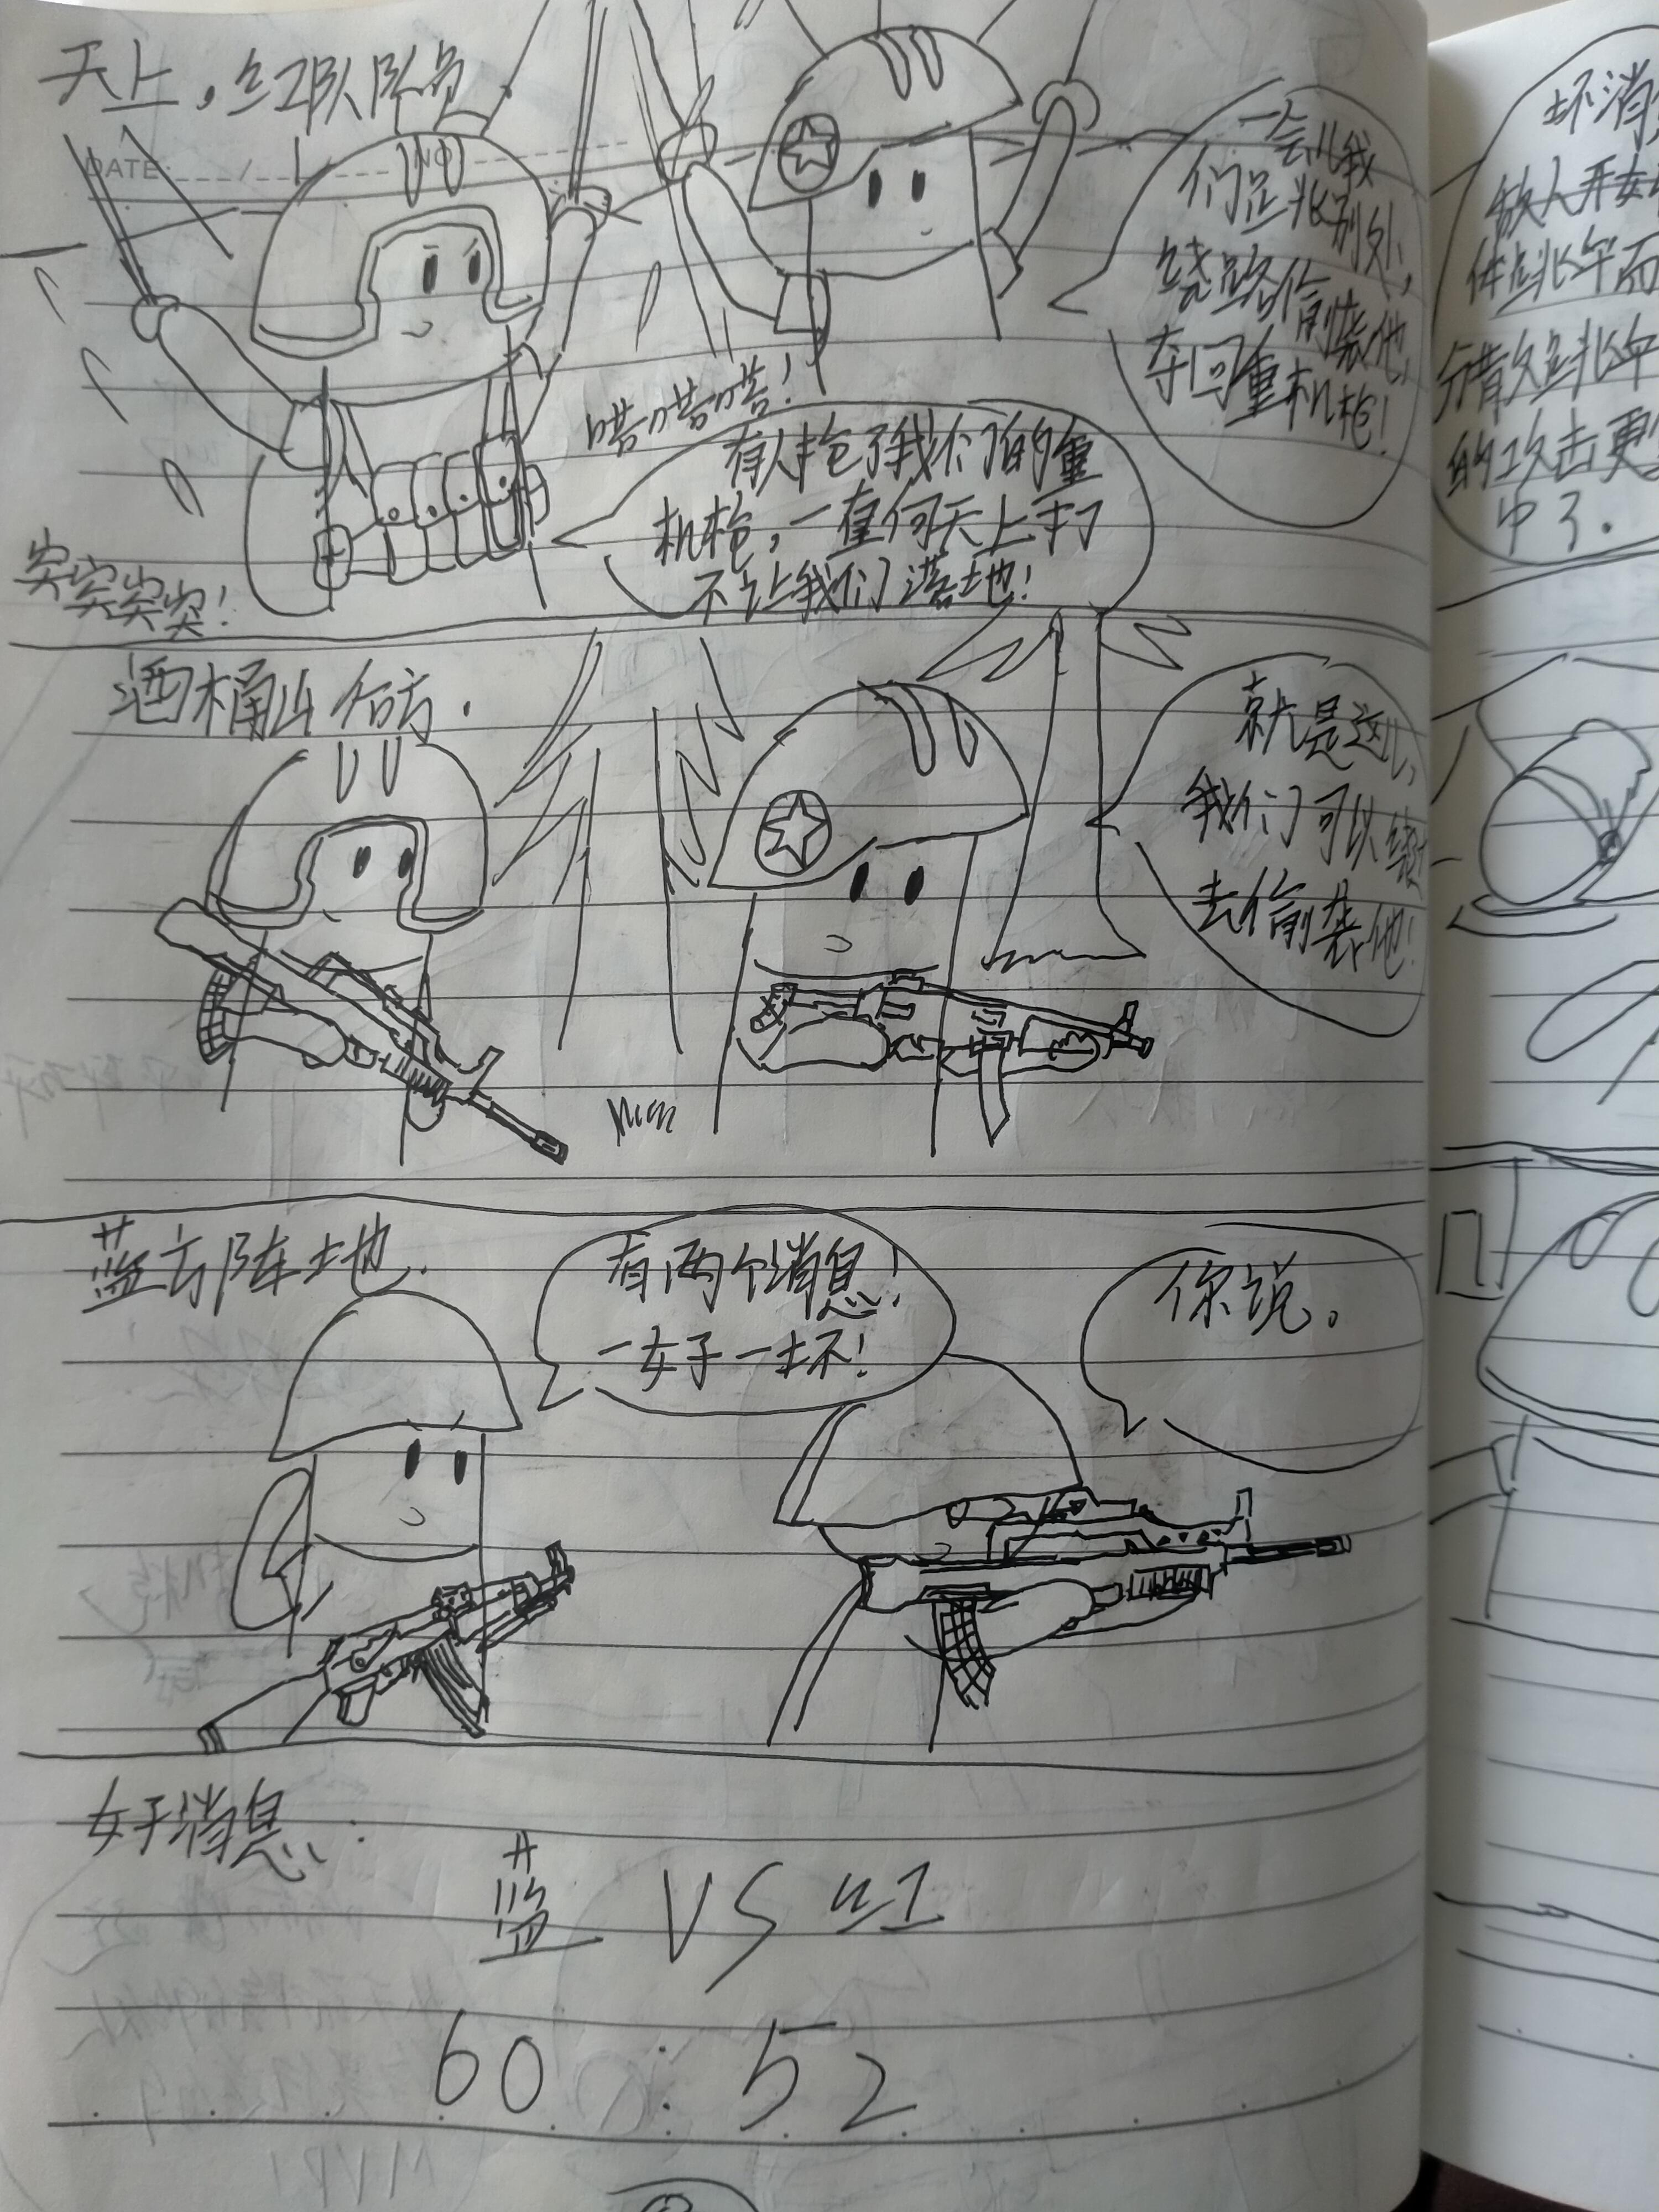 天上，红队队员
DATE / / NO
一会儿我
们跳别处，
绕路偷袭他，
夺回重机枪！
嗒嗒嗒！
有人抢了我们的重
机枪，一直向天上打
不让我们落地！
突突突突！
酒桶山右方．
就是这儿，
我们可以绕
去偷袭他！
蓝方阵地．
有两个消息！
一好一坏！
你说。
好消息：
蓝 VS 红
60 : 52
坏消
敌人开始
伞而
分散跳伞
的攻击更
中了．